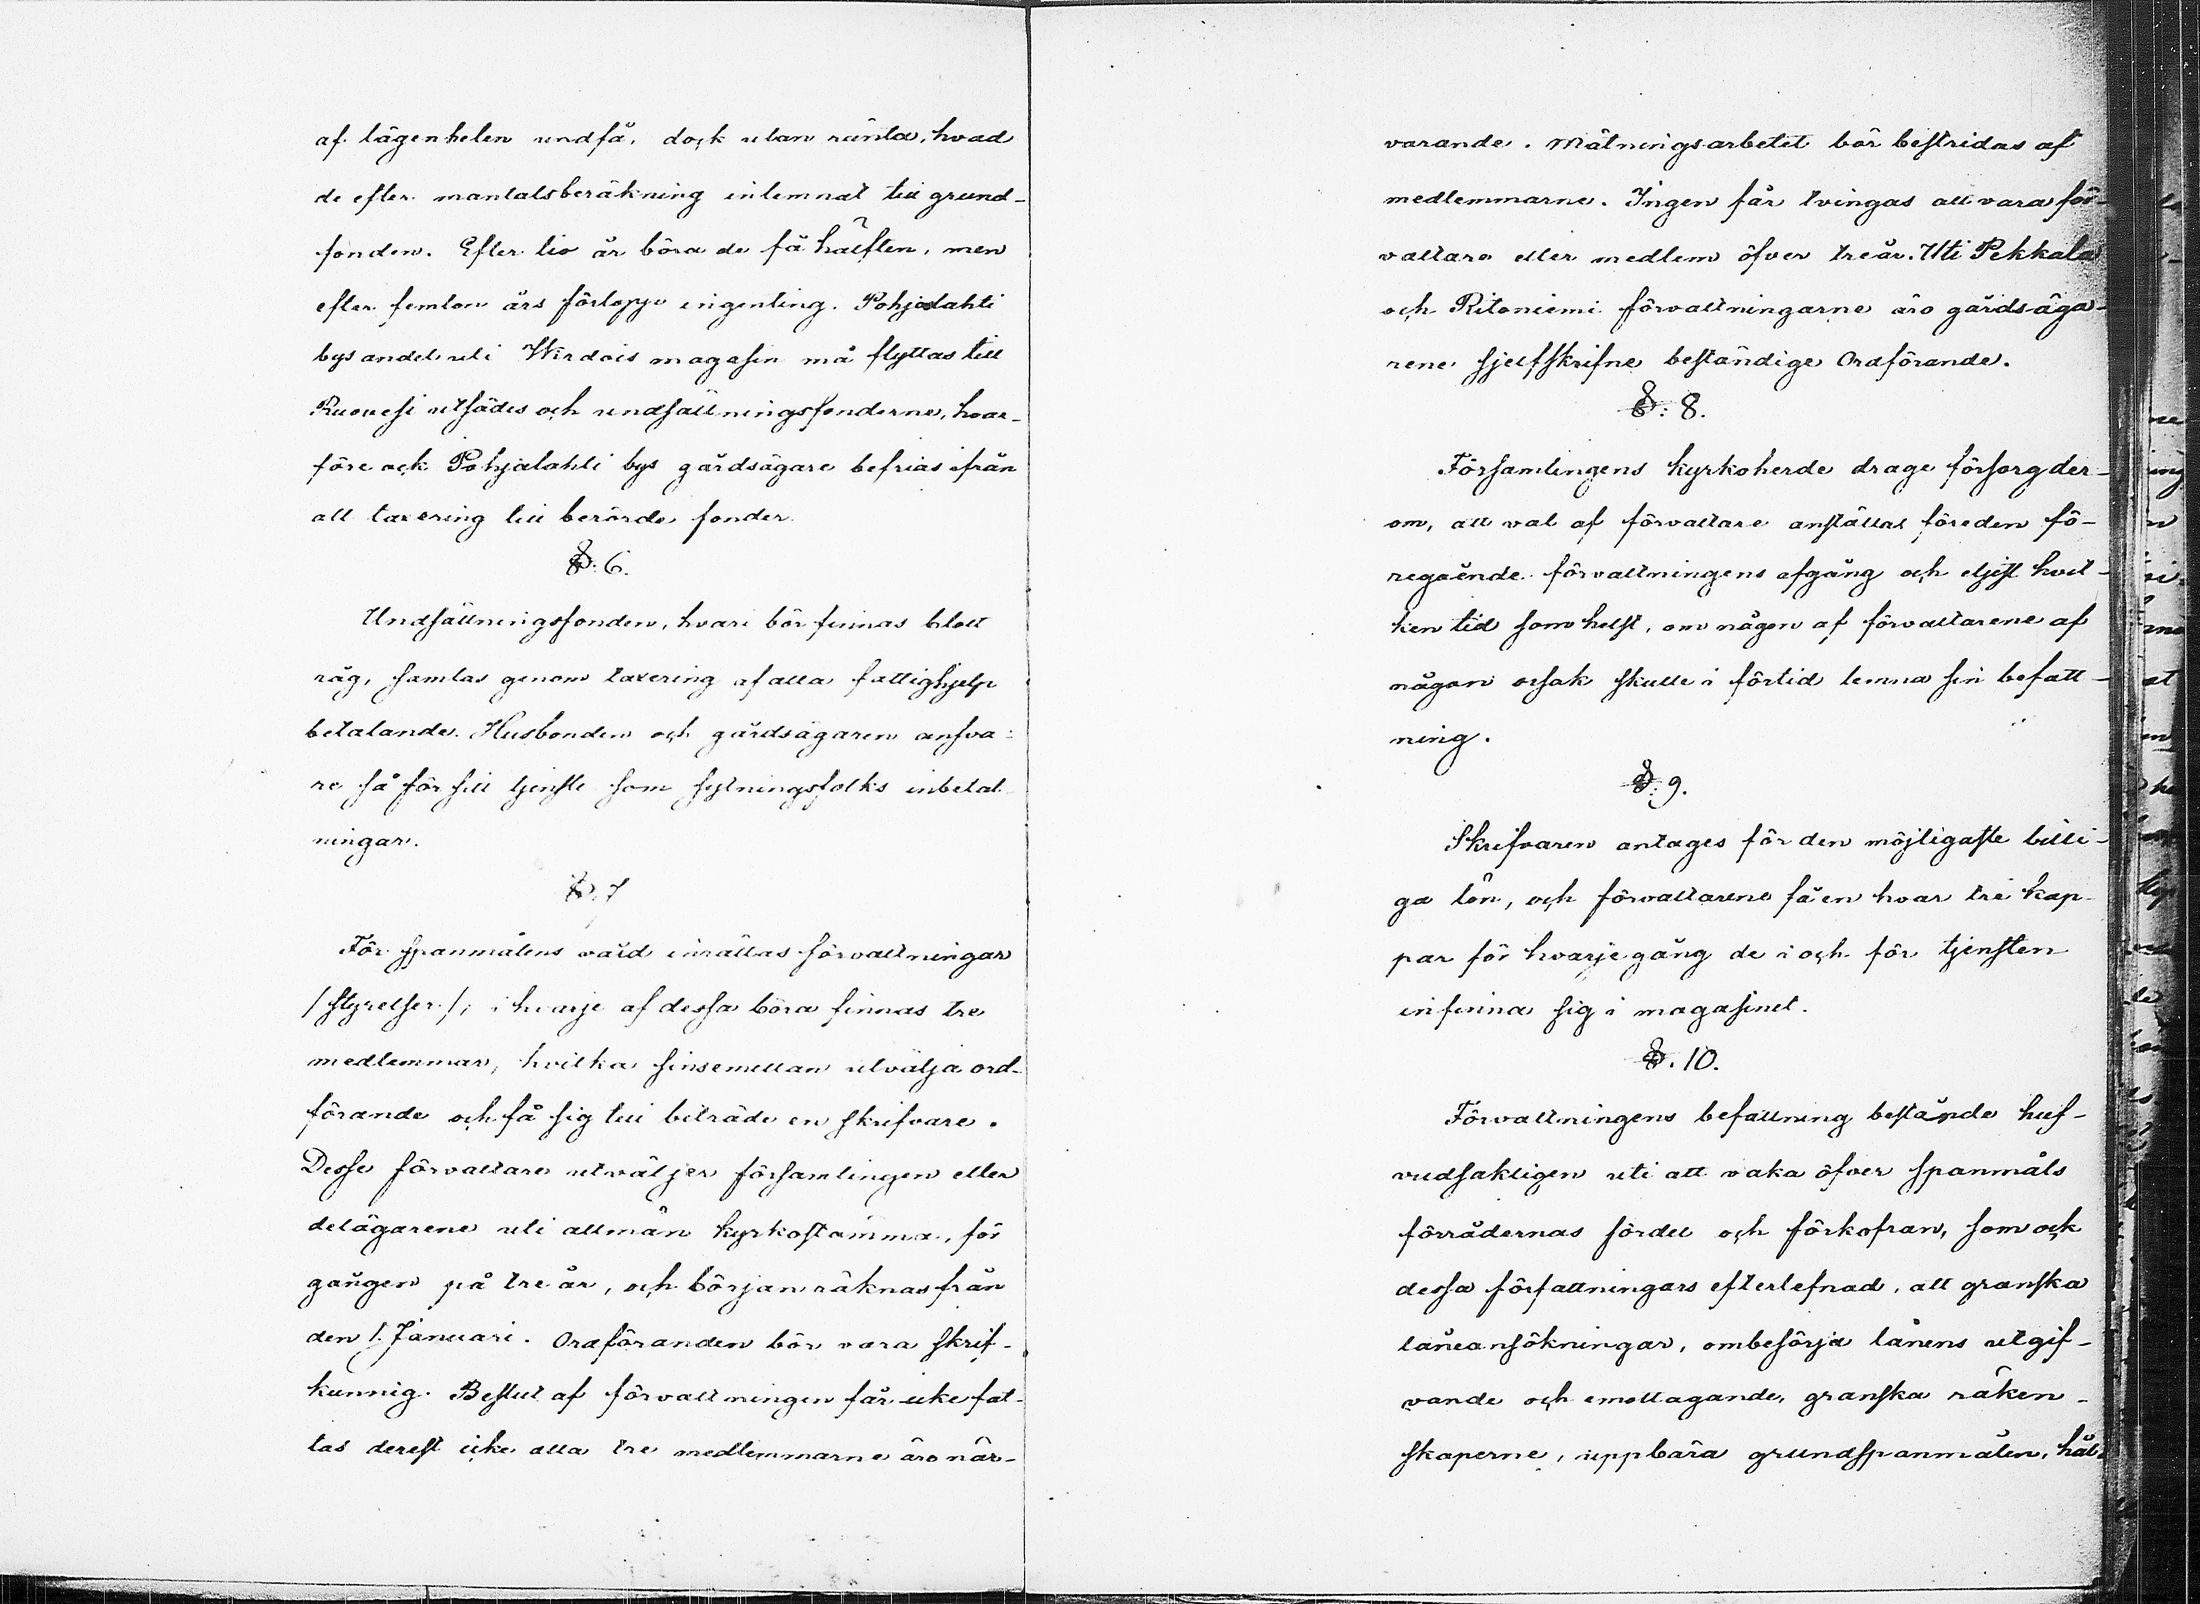 af lägenheten undfå, dock utan ränta, hvad
de efter mantalsberäkning inlemnat till grund-
fonden. Efter tio år böra de få hälften, men
efter femton års förlopp ingenting. Pohjalahti
bys andel uti Wirdois magasin må flyttas till
Ruovesi utsädes och undsättningsfonderne, hvar-
före ock Pohjalahti bys gårdsägare befrias ifrån
all taxering till berörde fonder.
§: 6.
Undsättningsfonden, hvari bör finnas blott
råg, samlas genom taxering af alla fattighjelp
betalande. Husbonden och gårdsägaren ansva:
re så för sitt tjenste som sytningsfolks inbetal
ningar.
§: 7
För spanmålens vård inrättas förvaltningar
/styrelser/; i hvarje af dessa böra finnas tre
medlemmar, hvilka sinsemellan utvälja ord-
förande och få sig till biträde en skrifvare.
Desse förvaltare utväljer församlingen eller
delägarene uti allmän kyrkostämma, för
gången på tre år, och början räknas från
den 1. Januari. Ordföranden bör vara skrif-
kunnig. Beslut af förvaltningen får icke fat-
tas derest icke alla tre medlemmarne äro när-
varande. Mätningsarbetet bör bestridas af
medlemmarne. Ingen får tvingas att vara för-
valtare eller medlem öfver tre år. Uti Pekkala
och Ritoniemi förvaltningarne äro gårdsäga-
rene sjelfskrifne beständige Ordförande.
§: 8.
Församlingens kyrkoherde drage försorg der-
om, att val af förvaltare anställas före den fö-
regående förvaltningens afgång och eljest hvil-
ken tid som helst, om någon af förvaltarene af
någon orsak skulle i förtid lemna sin befatt-
ning.
§: 9.
Skrifvaren antages för den möjligaste billi-
ga lön, och förvaltarene få en hvar tre kap-
par för hvarje gång de i och för tjensten
infinna sig i magasinet.
§. 10.
Förvaltningens befattning bestånde huf-
vudsakligen uti att vaka öfver spanmåls
förrådernas fördel och förkofran, som ock
dessa författningars efterlefnad, att granska
låneansökningar, ombesörja lånens utgif-
vande och emottagande, granska räken-
skaperne, uppbära grundspanmålen, hål-